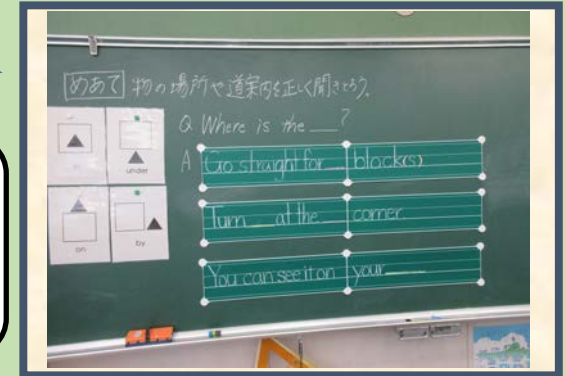 めあて 物の場所や道案内を正しく聞きとろう。
Q Where is the ___?
A Go straight for ___ block(s)
Turn ___ at the corner.
You can see it on your ____
under
on
by